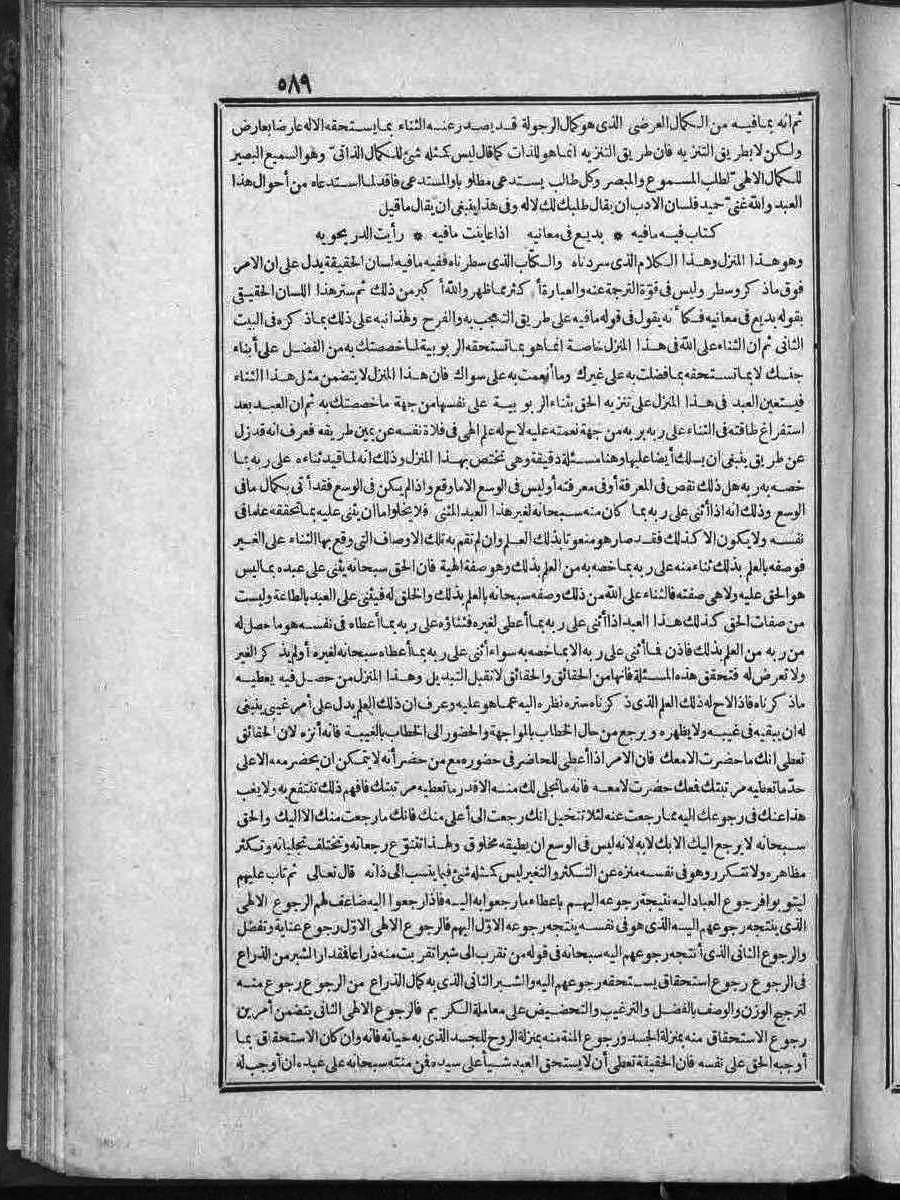 ٥٨٩
ثم انه بما فيه من الكمال العرضى الذى هو كمال الرجولة قد يصدر عنه الثناء بما يستحقه الاله عارضا بعارض
ولكن لا بطريق التنزيه فان طريق التنزيه انما هو للذات كما قال ليس كمثله شئ للكمال الذاتى وهو السميع البصير
للكمال الالهى لطلب المسموع والمبصر وكل طالب يستدعى مطلوبا والمستدعى فاقد لما استدعاه من أحوال هذا
العبد والله غنى حميد فلسان الادب ان يقال طلبك لك لا له وفى هذا ينبغى ان يقال ما قيل
كتاب فيه ما فيه * بديع فى معانيه اذا عاينت ما فيه * رأيت الدر يحويه
وهو هذا المنزل وهذا الكلام الذى سردناه والكتاب الذى سطرناه ففيه ما فيه لسان الحقيقة يدل على ان الامر
فوق ما ذكر وسطر وليس فى قوة الترجمة عنه والعبارة أكثر مما ظهر والله أكبر من ذلك ثم ستر هذا اللسان الحقيقى
بقوله بديع فى معانيه فكأنه يقول فى قوله ما فيه على طريق التعجب به والفرح ولهذا نبه على ذلك بما ذكره فى البيت
الثانى ثم ان الثناء على الله فى هذا المنزل خاصة انما هو بما تستحقه الربوبية لما خصصتك به من الفضل على أبناء
جنسك لا بما تستحقه بما فضلت به على غيرك وما أنعمت به على سواك فان هذا المنزل لا يتضمن مثل هذا الثناء
فيستعين العبد فى هذا المنزل على تنزيه الحق بثناء الربوبية على نفسها من جهة ما خصصتك به ثم ان العبد بعد
استفراغ طاقته فى الثناء على ربه بربه من جهة نعمته عليه لاح له علم الهى فى فلاة نفسه عن يمين طريقه فعرف انه قد زل
عن طريق ينبغى ان يسلك أيضا عليها وهنا مسئلة دقيقة وهى تختص بهذا المنزل وذلك انه لما قيد ثناءه على ربه بما
خصه به ربه هل ذلك نقص فى المعرفة أو فى معرفته أو ليس فى الوسع الا ما وقع واذا لم يكن فى الوسع فقد أتى بكمال ما فى
الوسع وذلك انه اذا أثنى على ربه بما كان منه سبحانه لغير هذا العبد المثنى فلا يخلو اما ان يثنى عليه بما تحققه علما فى
نفسه ولا يكون الا كذلك فقد صار هو منعوتا بذلك العلم وان لم تقم به تلك الاوصاف التى وقع بها الثناء على الغير
فوصفه بالعلم بذلك ثناء منه على ربه بما خصه به من العلم بذلك وهو صفة الهية فان الحق سبحانه يثنى على عبده بما ليس
هو الحق عليه ولا هى صفته فالثناء على الله من ذلك وصفه سبحانه بالعلم بذلك والخلق له فيثنى على العبد بالطاعة وليست
من صفات الحق كذلك هذا العبد اذا أثنى على ربه بما أعطى لغيره فثناؤه على ربه بما أعطاه فى نفسه هو ما حصل له
من ربه من العلم بذلك فاذن فما أثنى على ربه الا بما خصه به سواء أثنى على ربه بما أعطاه سبحانه لغيره أو لم يذكر الغير
ولا تعرض له فتحقق هذه المسئلة فانها من الحقائق والحقائق لا تقبل التبديل وهذا المنزل من حصل فيه يعطيه
ما ذكرناه فاذا لاح له ذلك العلم الذى ذكرناه ستره نظره اليه عما هو عليه وعرف ان ذلك العلم يدل على أمر غيبى ينبغى
له ان يبقيه فى غيبه ولا يظهره ويرجع من حال الخطاب بالمواجهة والحضور الى الخطاب بالغيبة فانه أنزه لان الحقائق
تعطى انك ما حضرت الا معك فان الامر اذا أعطى للحاضر فى حضوره مع من حضر أنه لا يتمكن ان يحضر معه الا على
حد ما تعطيه مرتبتك فمعك حضرت لا معه فانه ما تجلى لك منه الا قدر ما تعطيه مرتبتك فافهم ذلك تنتفع به ولا يغب
هذا عنك فى رجوعك اليه مما رجعت عنه لئلا تتخيل انك رجعت الى أعلى منك فانك ما رجعت منك الا اليك والحق
سبحانه لا يرجع اليك الا بك لا به لانه ليس فى الوسع ان يطيقه مخلوق ولهذا تتنوع رجعاته وتختلف تجلياته وتكثر
مظاهره ولا تتكرر وهو فى نفسه منزه عن التكثر والتغير ليس كمثله شئ فيما ينسب الى ذاته قال تعالى ثم تاب عليهم
ليتوبوا فرجوع العباد اليه نتيجة رجوعه اليهم باعطاء ما رجعوا به اليه فاذا رجعوا اليه ضاعف لهم الرجوع الالهى
الذى ينتجه رجوعهم اليه الذى هو فى نفسه ينتجه رجوعه الاول اليهم فالرجوع الالهى الاول رجوع عناية وتفضل
والرجوع الثانى الذى أنتجه رجوعهم اليه سبحانه فى قوله من تقرب الى شبرا تقربت منه ذراعا فقدار الشبر من الذراع
فى الرجوع رجوع استحقاق يستحقه رجوعهم اليه والشبر الثانى الذى به كمال الذراع من الرجوع رجوع منه
لترجيح الوزن والوصف بالفضل والترغيب والتحضيض على معاملة الكريم فالرجوع الالهى الثانى يتضمن أمرين
رجوع الاستحقاق منه بمنزلة الجسد ورجوع المنة منه بمنزلة الروح للجسد الذى به حياته فانه وان كان الاستحقاق بما
أوجبه الحق على نفسه فان الحقيقة تعطى أن لا يستحق العبد شيأ على سيده فمن منته سبحانه على عبده ان أوجب له